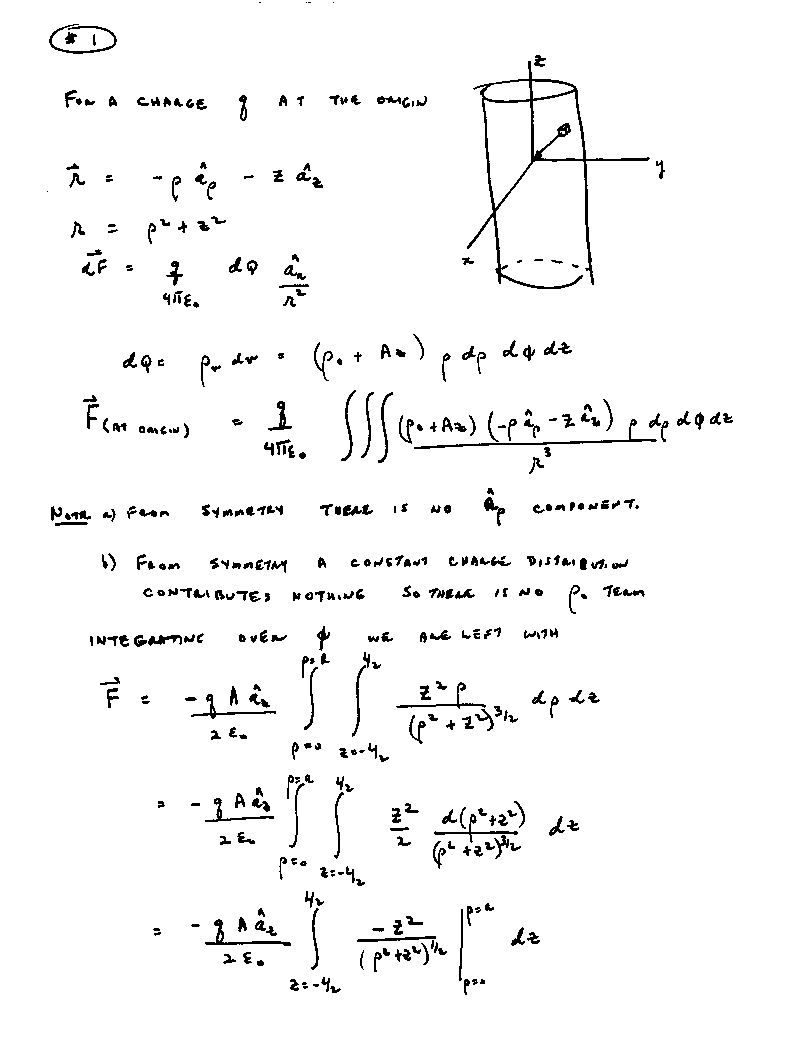 # 1
z
FOR A CHARGE q AT THE ORIGIN
y
x
r⃗ = -ρ âρ - z âz
r = ρ² + z²
dF⃗ = q/4πε₀ dQ âr/r²
dQ = ρv dv = (ρ₀ + Az) ρ dρ dφ dz
F⃗(AT ORIGIN) = q/4πε₀ ∫∫∫ (ρ₀ + Az) (-ρ âρ - z âz) ρ dρ dφ dz / r³
NOTE a) FROM SYMMETRY THERE IS NO âρ COMPONENT.
b) FROM SYMMETRY A CONSTANT CHARGE DISTRIBUTION
CONTRIBUTES NOTHING SO THERE IS NO ρ₀ TERM
INTEGRATING OVER φ WE ARE LEFT WITH
F⃗ = -q A âz / 2ε₀ ∫ρ=0^ρ=a ∫z=-L/2^L/2 z² ρ / (ρ² + z²)^3/2 dρ dz
= -q A âz / 2ε₀ ∫ρ=0^ρ=a ∫z=-L/2^L/2 z²/2 d(ρ²+z²) / (ρ² + z²)^3/2 dz
= -q A âz / 2ε₀ ∫z=-L/2^L/2 -z² / (ρ²+z²)^1/2 |ρ=0^ρ=a dz